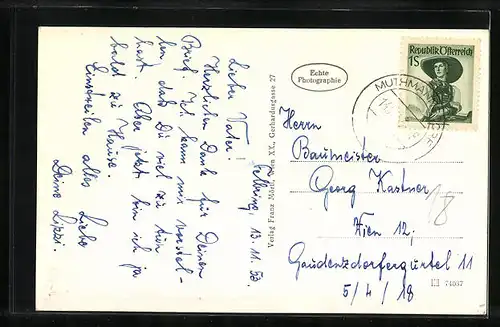 Felbring, 13.11.53
Lieber Vater!
Herzlichen Dank für Deinen
Brief. Ich kann mir vorstel-
len, daß Du viel zu tun
hast. Aber jetzt bin ich ja
bald zu Hause.
Einstweilen alles Liebe
Deine Lissi.
Verlag Franz Mörtl, Wien XX., Gerhardusgasse 27
Echte
Photographie
Republik Österreich
1S
Herrn
Baumeister
Georg Kastner
Wien 12,
Gaudenzdorfergürtel 11
5/4/18
18
74537